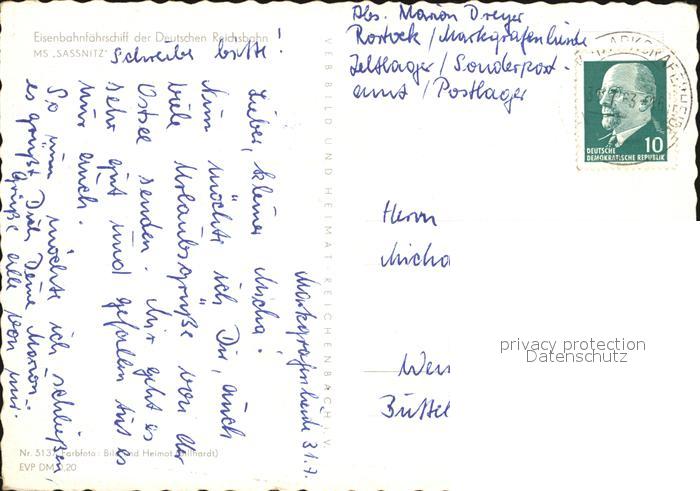 Eisenbahnfährschiff der Deutschen Reichsbahn
MS „SASSNITZ"
Schreibe bitte!
Markgrafenheide 31.7.
Lieber, kleiner Micha!
Nun möchte ich Dir, auch
viele Urlaubsgrüße von der
Ostsee senden. Mir geht es
sehr gut und gefallen tut es
mir auch.
So nun möchte ich schließen,
es grüßt Dich Deine Marion.
Grüße alle von mir.
VEB BILD UND HEIMAT · REICHENBACH i. V.
Nr. 513 Farbfoto: Bild und Heimat
EVP DM 0,20
Abs. Marion Dreyer
Rostock / Markgrafenheide
Zeltlager / Sonderpost-
amt / Postlager
DEUTSCHE
DEMOKRATISCHE REPUBLIK
10
Herrn
Micha
Büttel
privacy protection
Datenschutz